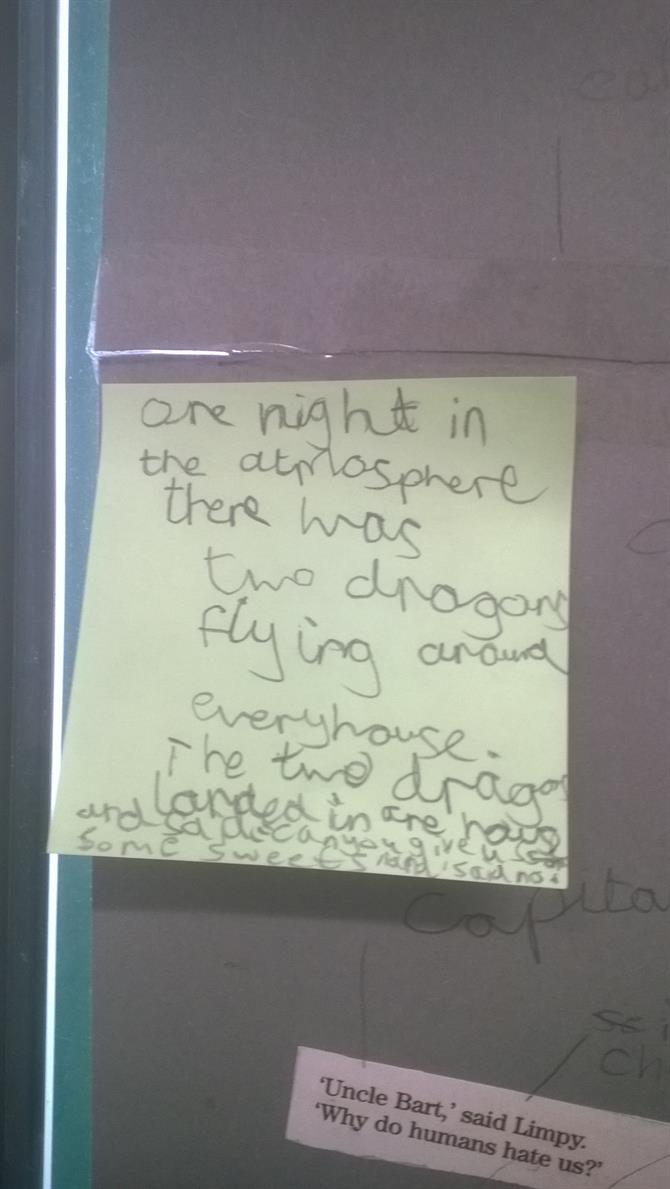 ca
are night in
the atmosphere
there was
two dragons
flying around
everyhouse.
The two dragos
landed in are hous
and sadi can you give us
some sweets and i said no.
Capita
ss i
Ch
'Uncle Bart,' said Limpy.
'Why do humans hate us?'